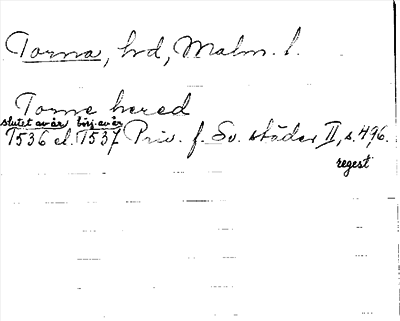 Torna, hrd, Malm. l.
Torne hered
slutet av år börj. av år
1536 el. 1537 Priv. f. Sv. städer II, s. 496.
regest